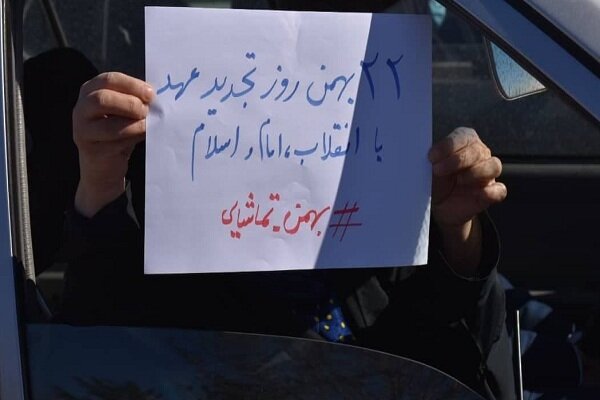 ۲۲ بهمن روز تجدید عهد
با انقلاب، امام و اسلام
#بهمن_تماشایی